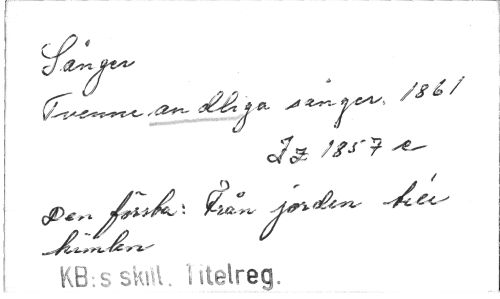 Sånger
Tvenne andliga sånger. 1861
Jz 1857 c
Den första: Från jorden till
himlen
KB:s skill. Titelreg.